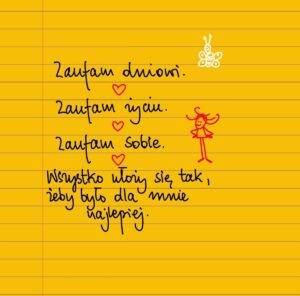 Zaufam dniowi.
Zaufam życiu.
Zaufam sobie.
Wszystko ułoży się tak,
żeby było dla mnie
najlepiej.